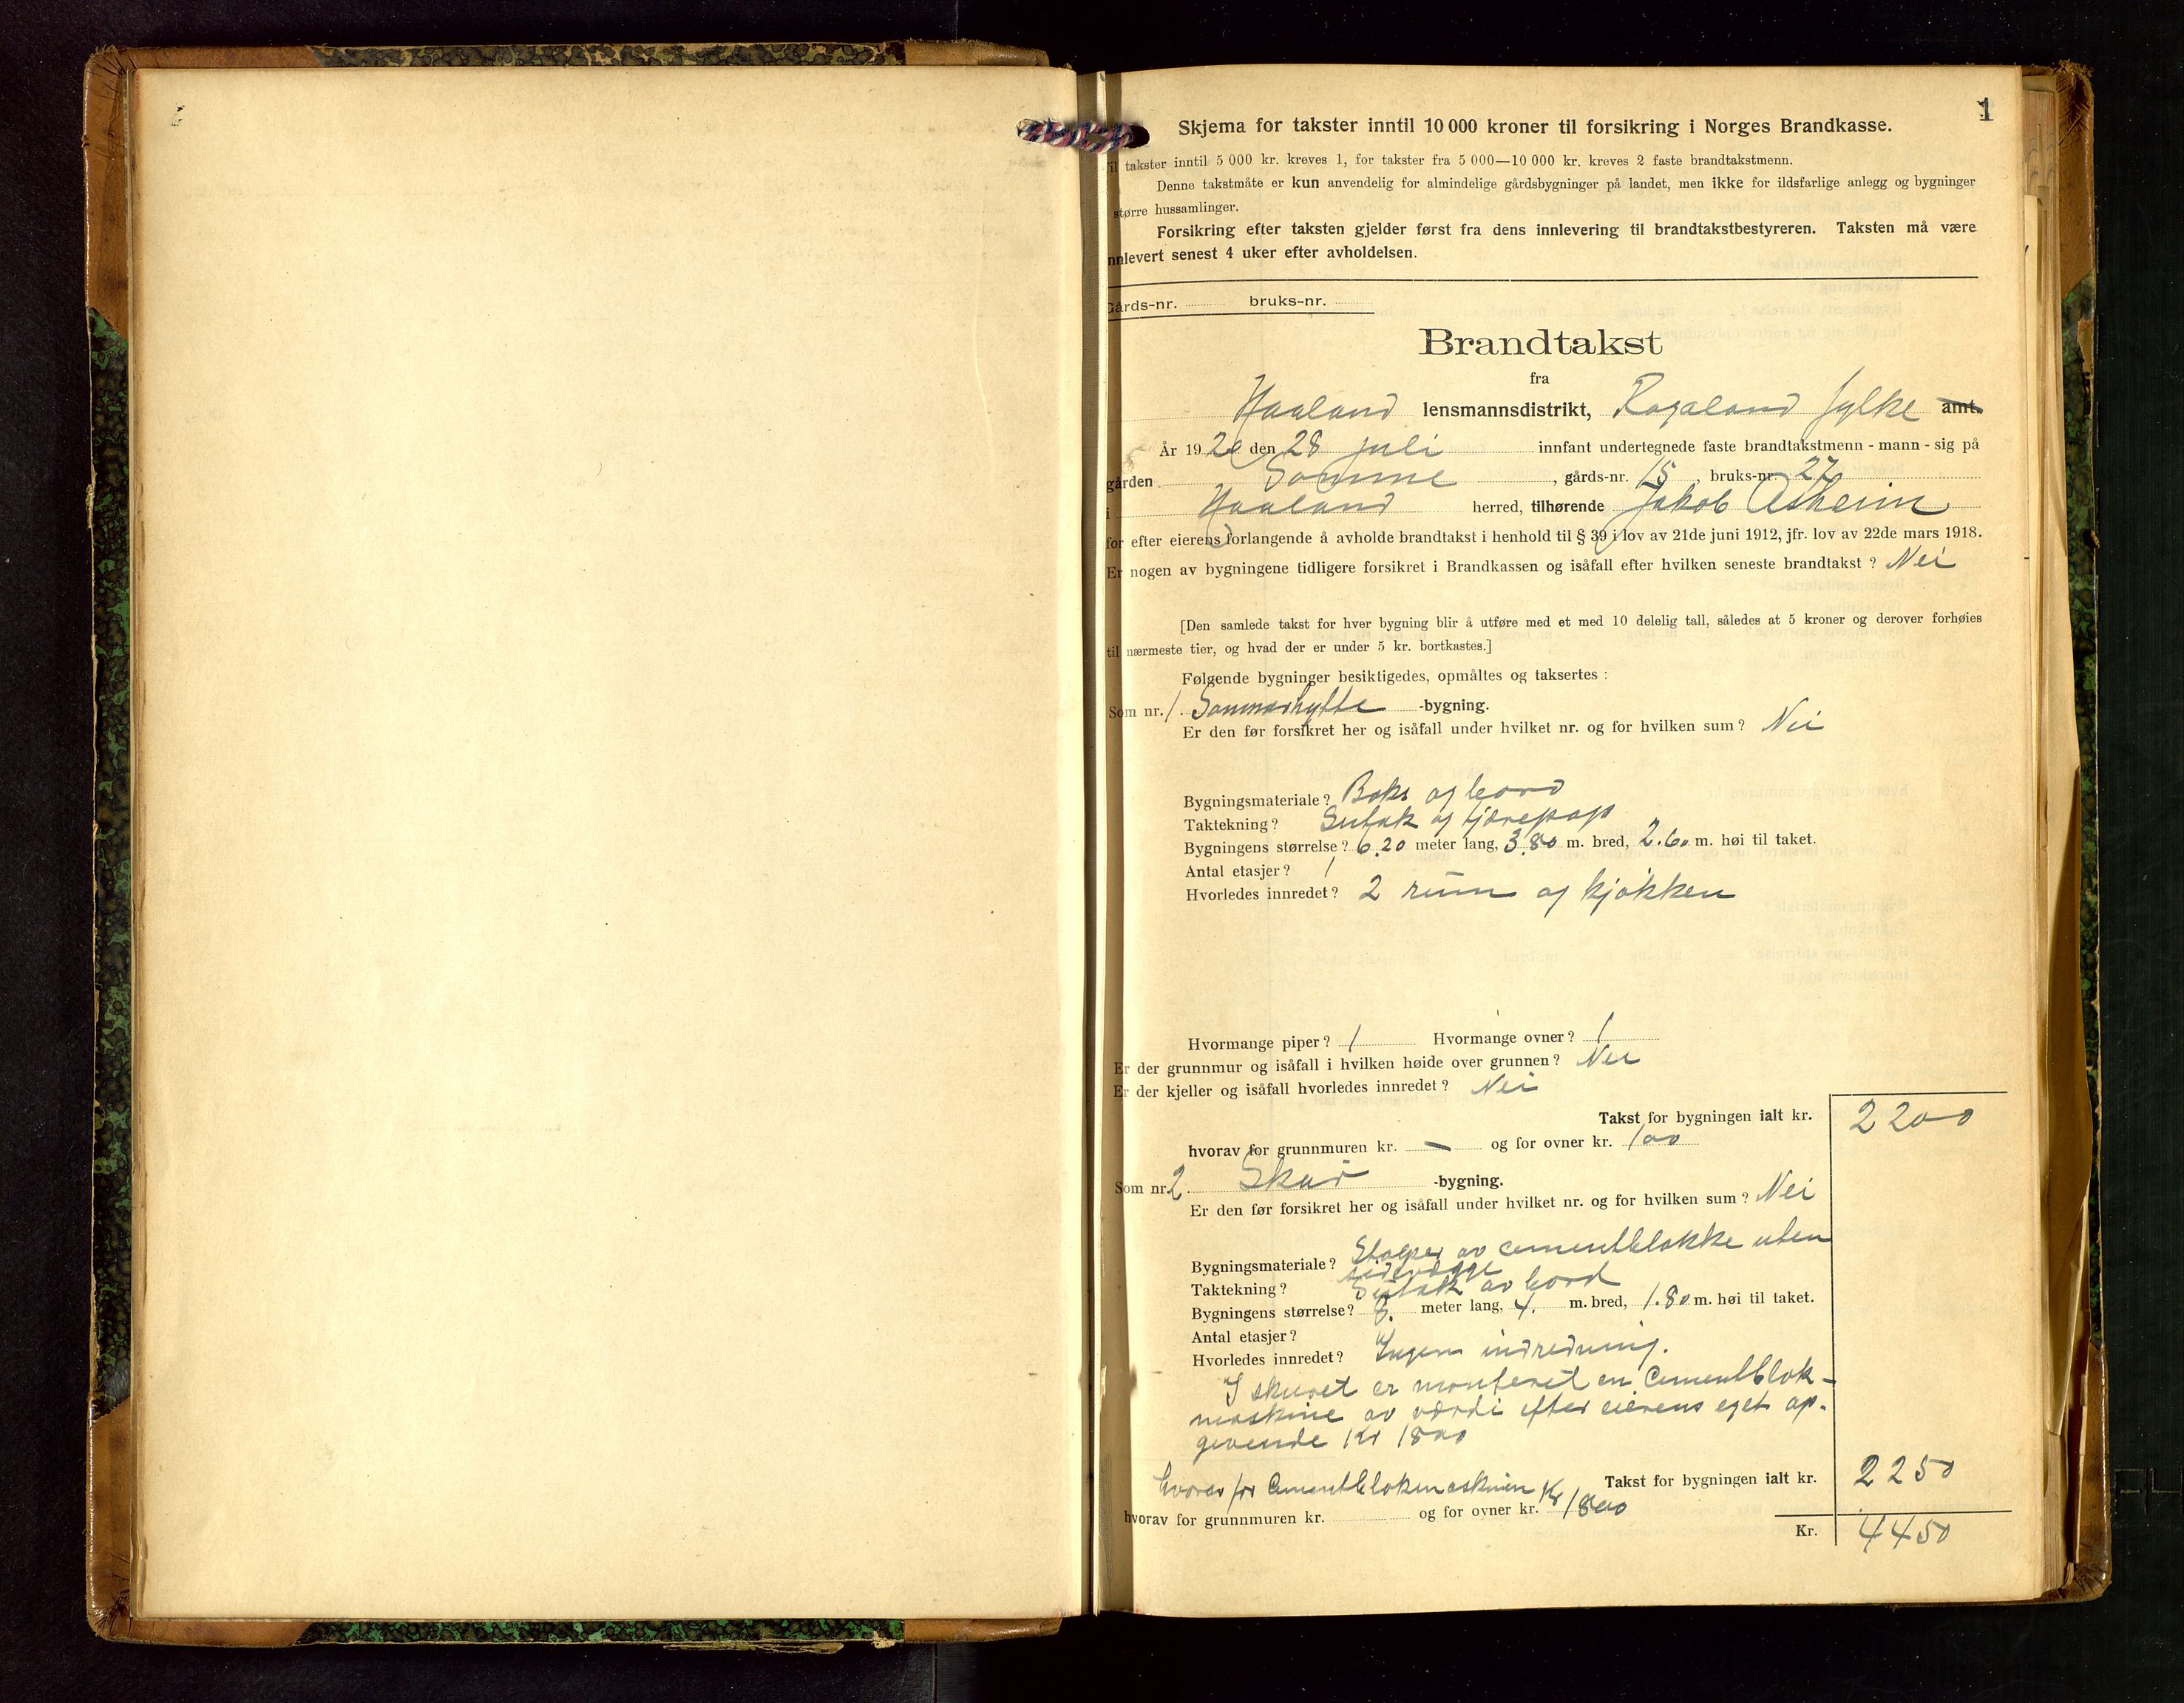 1
Skjema for takster inntil 10 000 kroner til forsikring i Norges Brandkasse.
il takster inntil 5 000 kr. kreves 1, for takster fra 5 000—10 000 kr. kreves 2 faste brandtakstmenn.
Denne takstmåte er kun anvendelig for almindelige gårdsbygninger på landet, men ikke for ildsfarlige anlegg og bygninger
større hussamlinger.
Forsikring efter taksten gjelder først fra dens innlevering til brandtakstbestyreren. Taksten må være
nnlevert senest 4 uker efter avholdelsen.
Gårds-nr. bruks-nr.
Brandtakst
fra
Haaland lensmannsdistrikt, Rogaland fylke amt.
År 1920 den 28 juli innfant undertegnede faste brandtakstmenn - mann - sig på
gården Sømme, gårds-nr. 15, bruks-nr. 27
i Haaland herred, tilhørende Jakob Askeim
for efter eierens forlangende å avholde brandtakst i henhold til § 39 i lov av 21de juni 1912, jfr. lov av 22de mars 1918.
Er nogen av bygningene tidligere forsikret i Brandkassen og isåfall efter hvilken seneste brandtakst? Nei
[Den samlede takst for hver bygning blir å utføre med et med 10 delelig tall, således at 5 kroner og derover forhøies
til nærmeste tier, og hvad der er under 5 kr. bortkastes.]
Følgende bygninger besiktigedes, opmåltes og taksertes:
Som nr. 1. Sommerhytte -bygning.
Er den før forsikret her og isåfall under hvilket nr. og for hvilken sum? Nei
Bygningsmateriale? Boks og bord
Taktekning? Sutak og tjærepap
Bygningens størrelse? 6.20 meter lang, 3.80 m. bred, 2.60 m. høi til taket.
Antal etasjer? 1
Hvorledes innredet? 2 rum og kjøkken
Hvormange piper? 1 Hvormange ovner? 1
Er der grunnmur og isåfall i hvilken høide over grunnen? Nei
Er der kjeller og isåfall hvorledes innredet? Nei
Takst for bygningen ialt kr. 2200
hvorav for grunnmuren kr. — og for ovner kr. 100
Som nr. 2 Skur -bygning.
Er den før forsikret her og isåfall under hvilket nr. og for hvilken sum? Nei
Bygningsmateriale? Stolper av cementblokke uten
sidevægge
Taktekning? Sutak av bord
Bygningens størrelse? 8. meter lang, 4. m. bred, 1.80 m. høi til taket.
Antal etasjer?
Hvorledes innredet? Ingen indredning.
I skuret er monteret en Cementblok-
maskine av værdi efter eierens eget op-
givende Kr 1800
hvorav for Cementblokmaskinen Kr 1800 Takst for bygningen ialt kr. 2250
hvorav for grunnmuren kr. og for ovner kr.
Kr. 4450